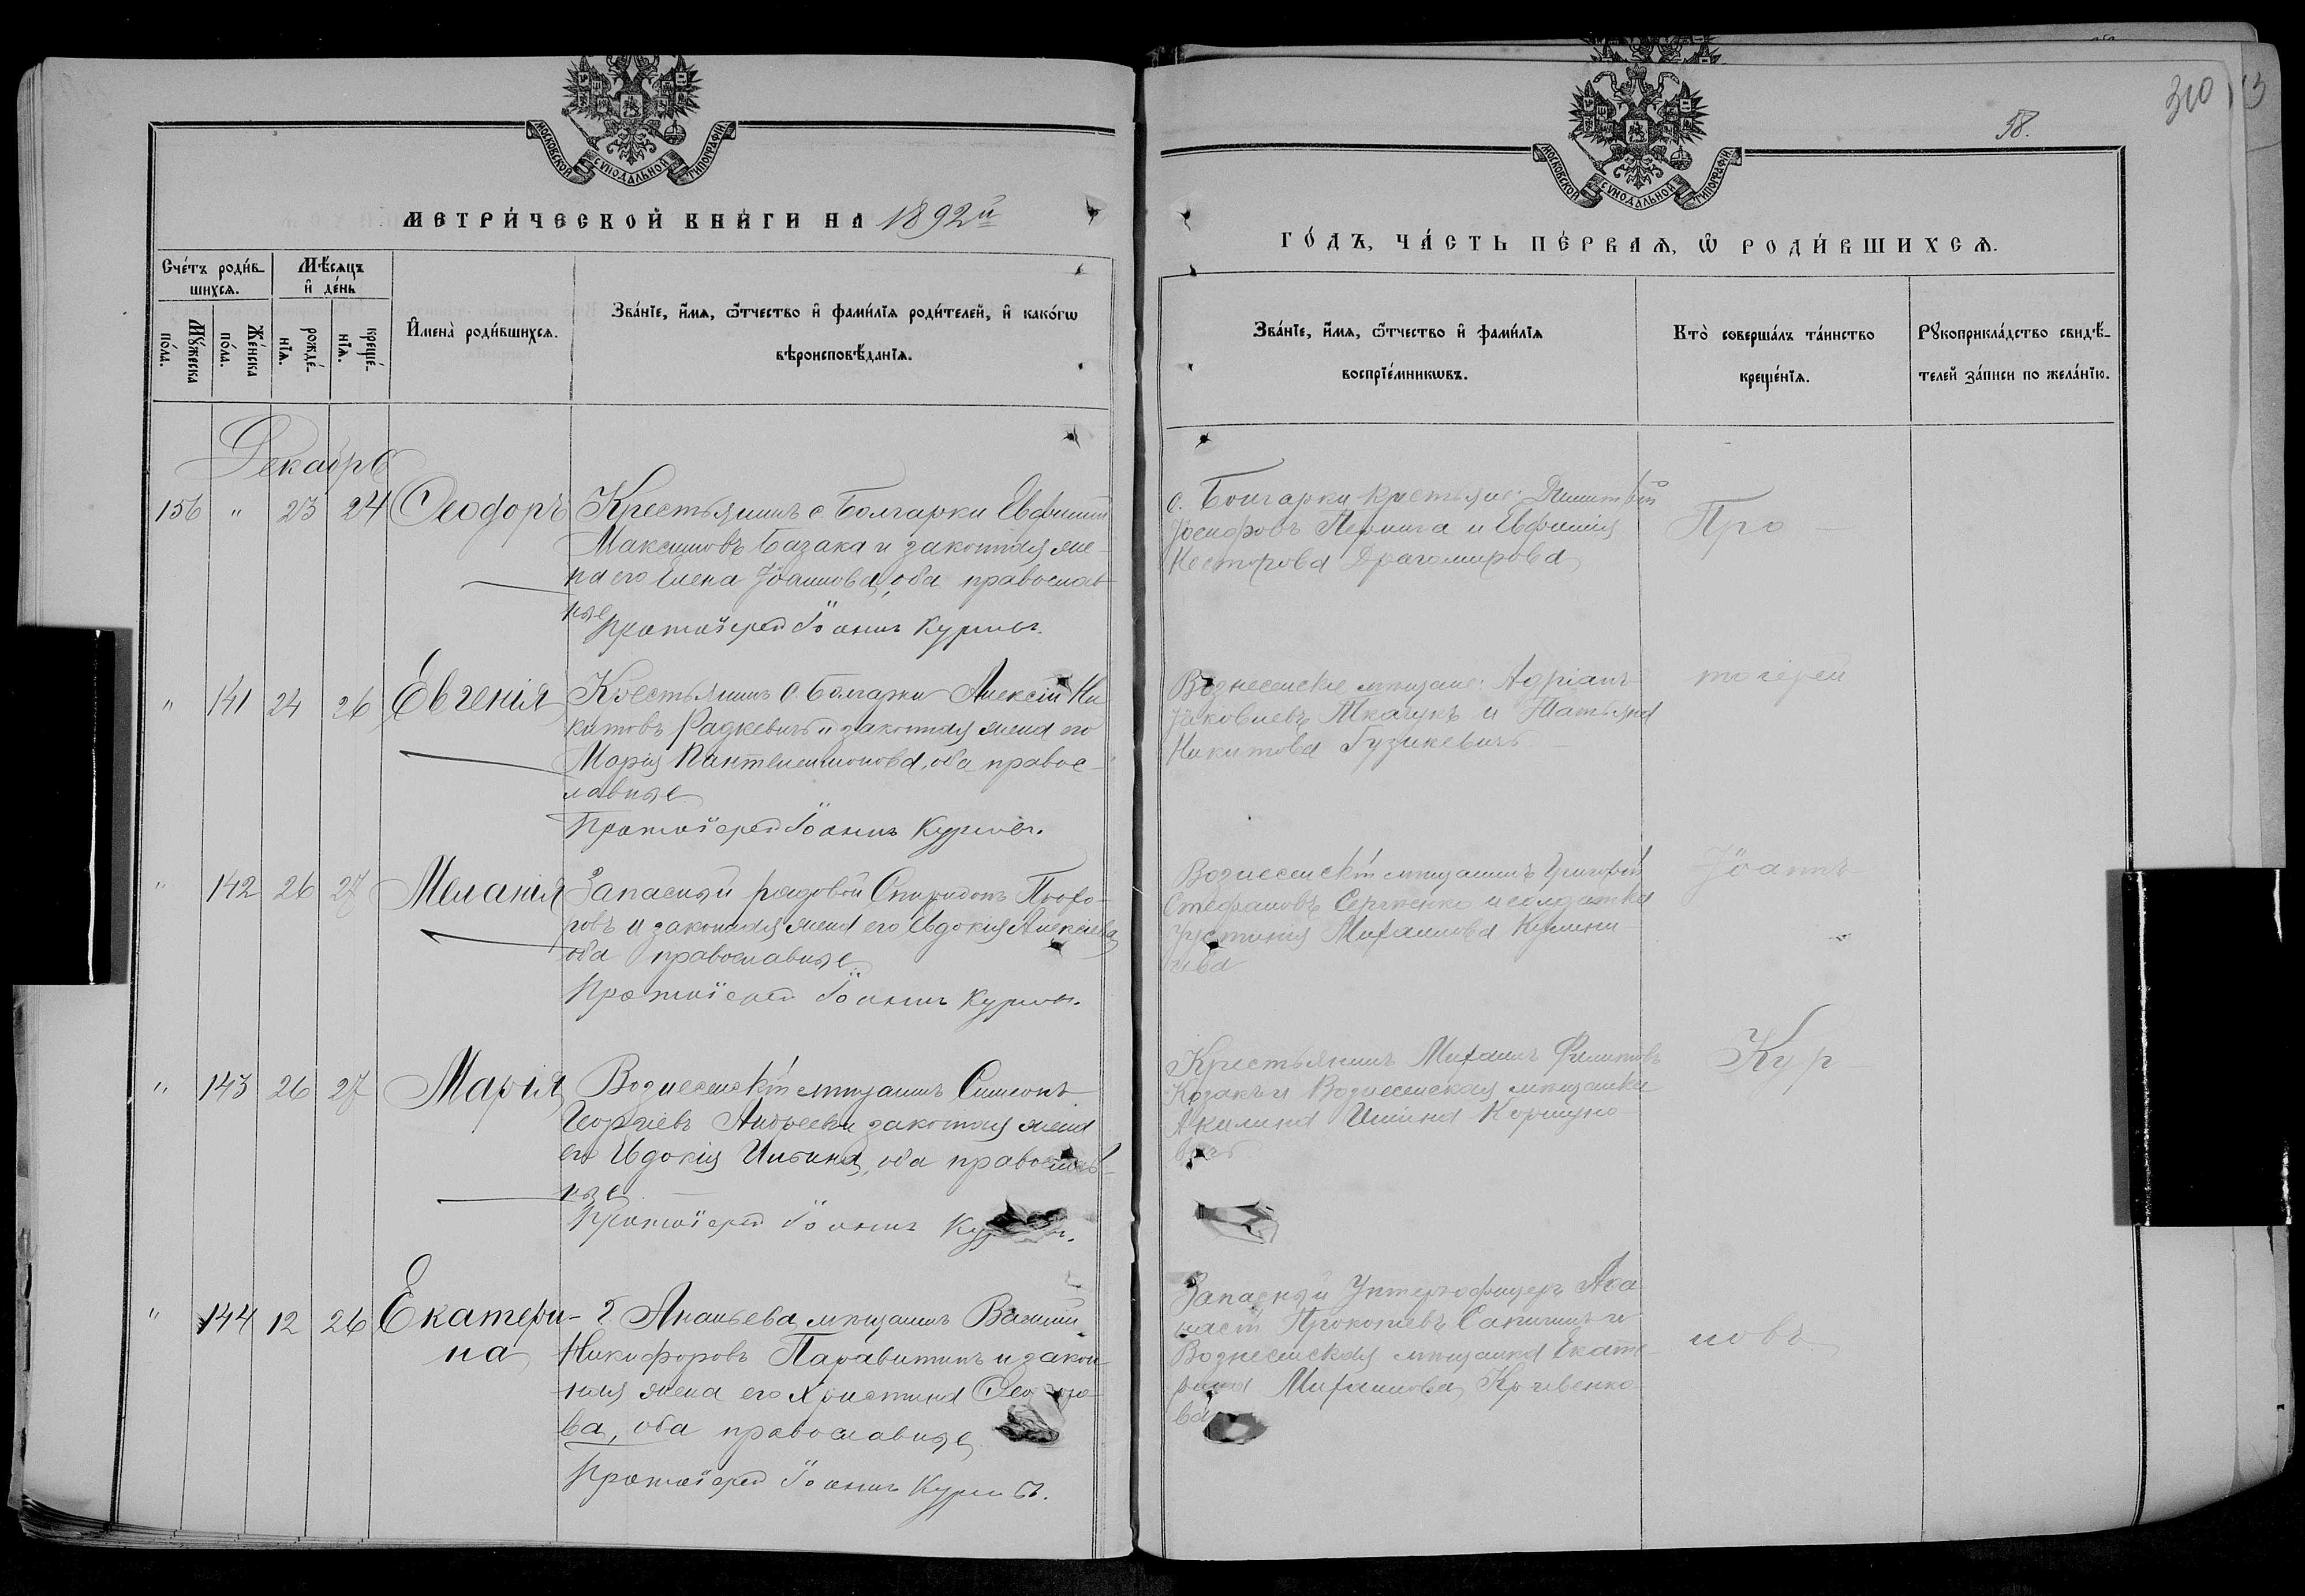 МОСКОВСКОЙ СѴНОДАЛЬНОЙ ТИПОГРАФІИ
МЕТРИ́ЧЕСКОЙ КНИ́ГИ НА 1892й
Сче́тъ роди́в-
шихся.
Мѣ́сяцъ
и҆ де́нь
Мꙋ́жеска по́ла.
Же́нска по́ла.
рожде́-
нїѧ.
креще́-
нїѧ.
И҆мена̀ роди́вшихсѧ.
Зва́нїе, и҆́мѧ, ѻ҆́тчество и҆ фами́лїѧ роди́телей, и҆ како́гѡ
вѣроисповѣ́данїѧ.
Декабрь
156 " 23 24 Ѳеодоръ
Крестьянинъ с Болгарки Евфимій
Максимовъ Базака и законная же-
на его Елена Іоаннова, оба православ-
ные
Протоіерей Іоаннъ Курловъ.
" 141 24 26 Евгенія
Крестьянинъ с. Болгарки Алексій Ни
китовъ Радкевичъ и законная жена его
Марія Пантелеимонова, оба правос-
лавные
Протоіерей Іоаннъ Курловъ.
" 142 26 27 Меланія
Запасный рядовой Спиридонъ Прохо-
ровъ и законная жена его Евдокія Алексіева
оба православные
Протоіерей Іоаннъ Курловъ.
" 143 26 27 Марія
Вознесенскій мѣщанинъ Симеонъ
Георгіевъ и законная жена
его Евдокія Ильина, оба православ-
ные
Протоіерей Іоаннъ
" 144 12 26 Екатери-
на
г Ананьева мѣщанинъ Василій
Никифоровъ Паравитинъ и закон-
ная жена его Христина Ѳеодоро-
ва, оба православные
Протоіерей Іоаннъ Курловъ.
310
58.
МОСКОВСКОЙ СѴНОДАЛЬНОЙ ТИПОГРАФІИ
ГО́ДЪ, ЧА́СТЬ ПЕ́РВАѦ, Ѽ РОДИ́ВШИХСѦ.
Зва́нїе, и҆́мѧ, ѻ҆́тчество и҆ фами́лїѧ
воспрїе́мникѡвъ.
Кто̀ соверша́лъ та́инство
креще́нїѧ.
Рꙋкоприкла́дство свидѣ́-
телей за́писи по жела́нїю.
с. Болгарки крестьяне: Димитрій
Іосифовъ и Евфимія
Несторова Драгомирова
Про-
Вознесенскіе мѣщане: Адріанъ
Іаковлевъ Ткачукъ и Татьяна
Никитова Гузикевичъ
тоіерей
Вознесенскій мѣщанинъ Григорій
Стефановъ Сергиенко и солдатка
Устинія Михаилова
Іоаннъ
Крестьянинъ Михаилъ Филиповъ
Козакъ и Вознесенская мѣщанка
Акилина Ильина Коршуно-
Кур-
Запасный Унтеръ-офицеръ Аѳа
насій Прокопіевъ и
Вознесенская мѣщанка Екате-
рина Михаилова Кривенко-
ва
ловъ